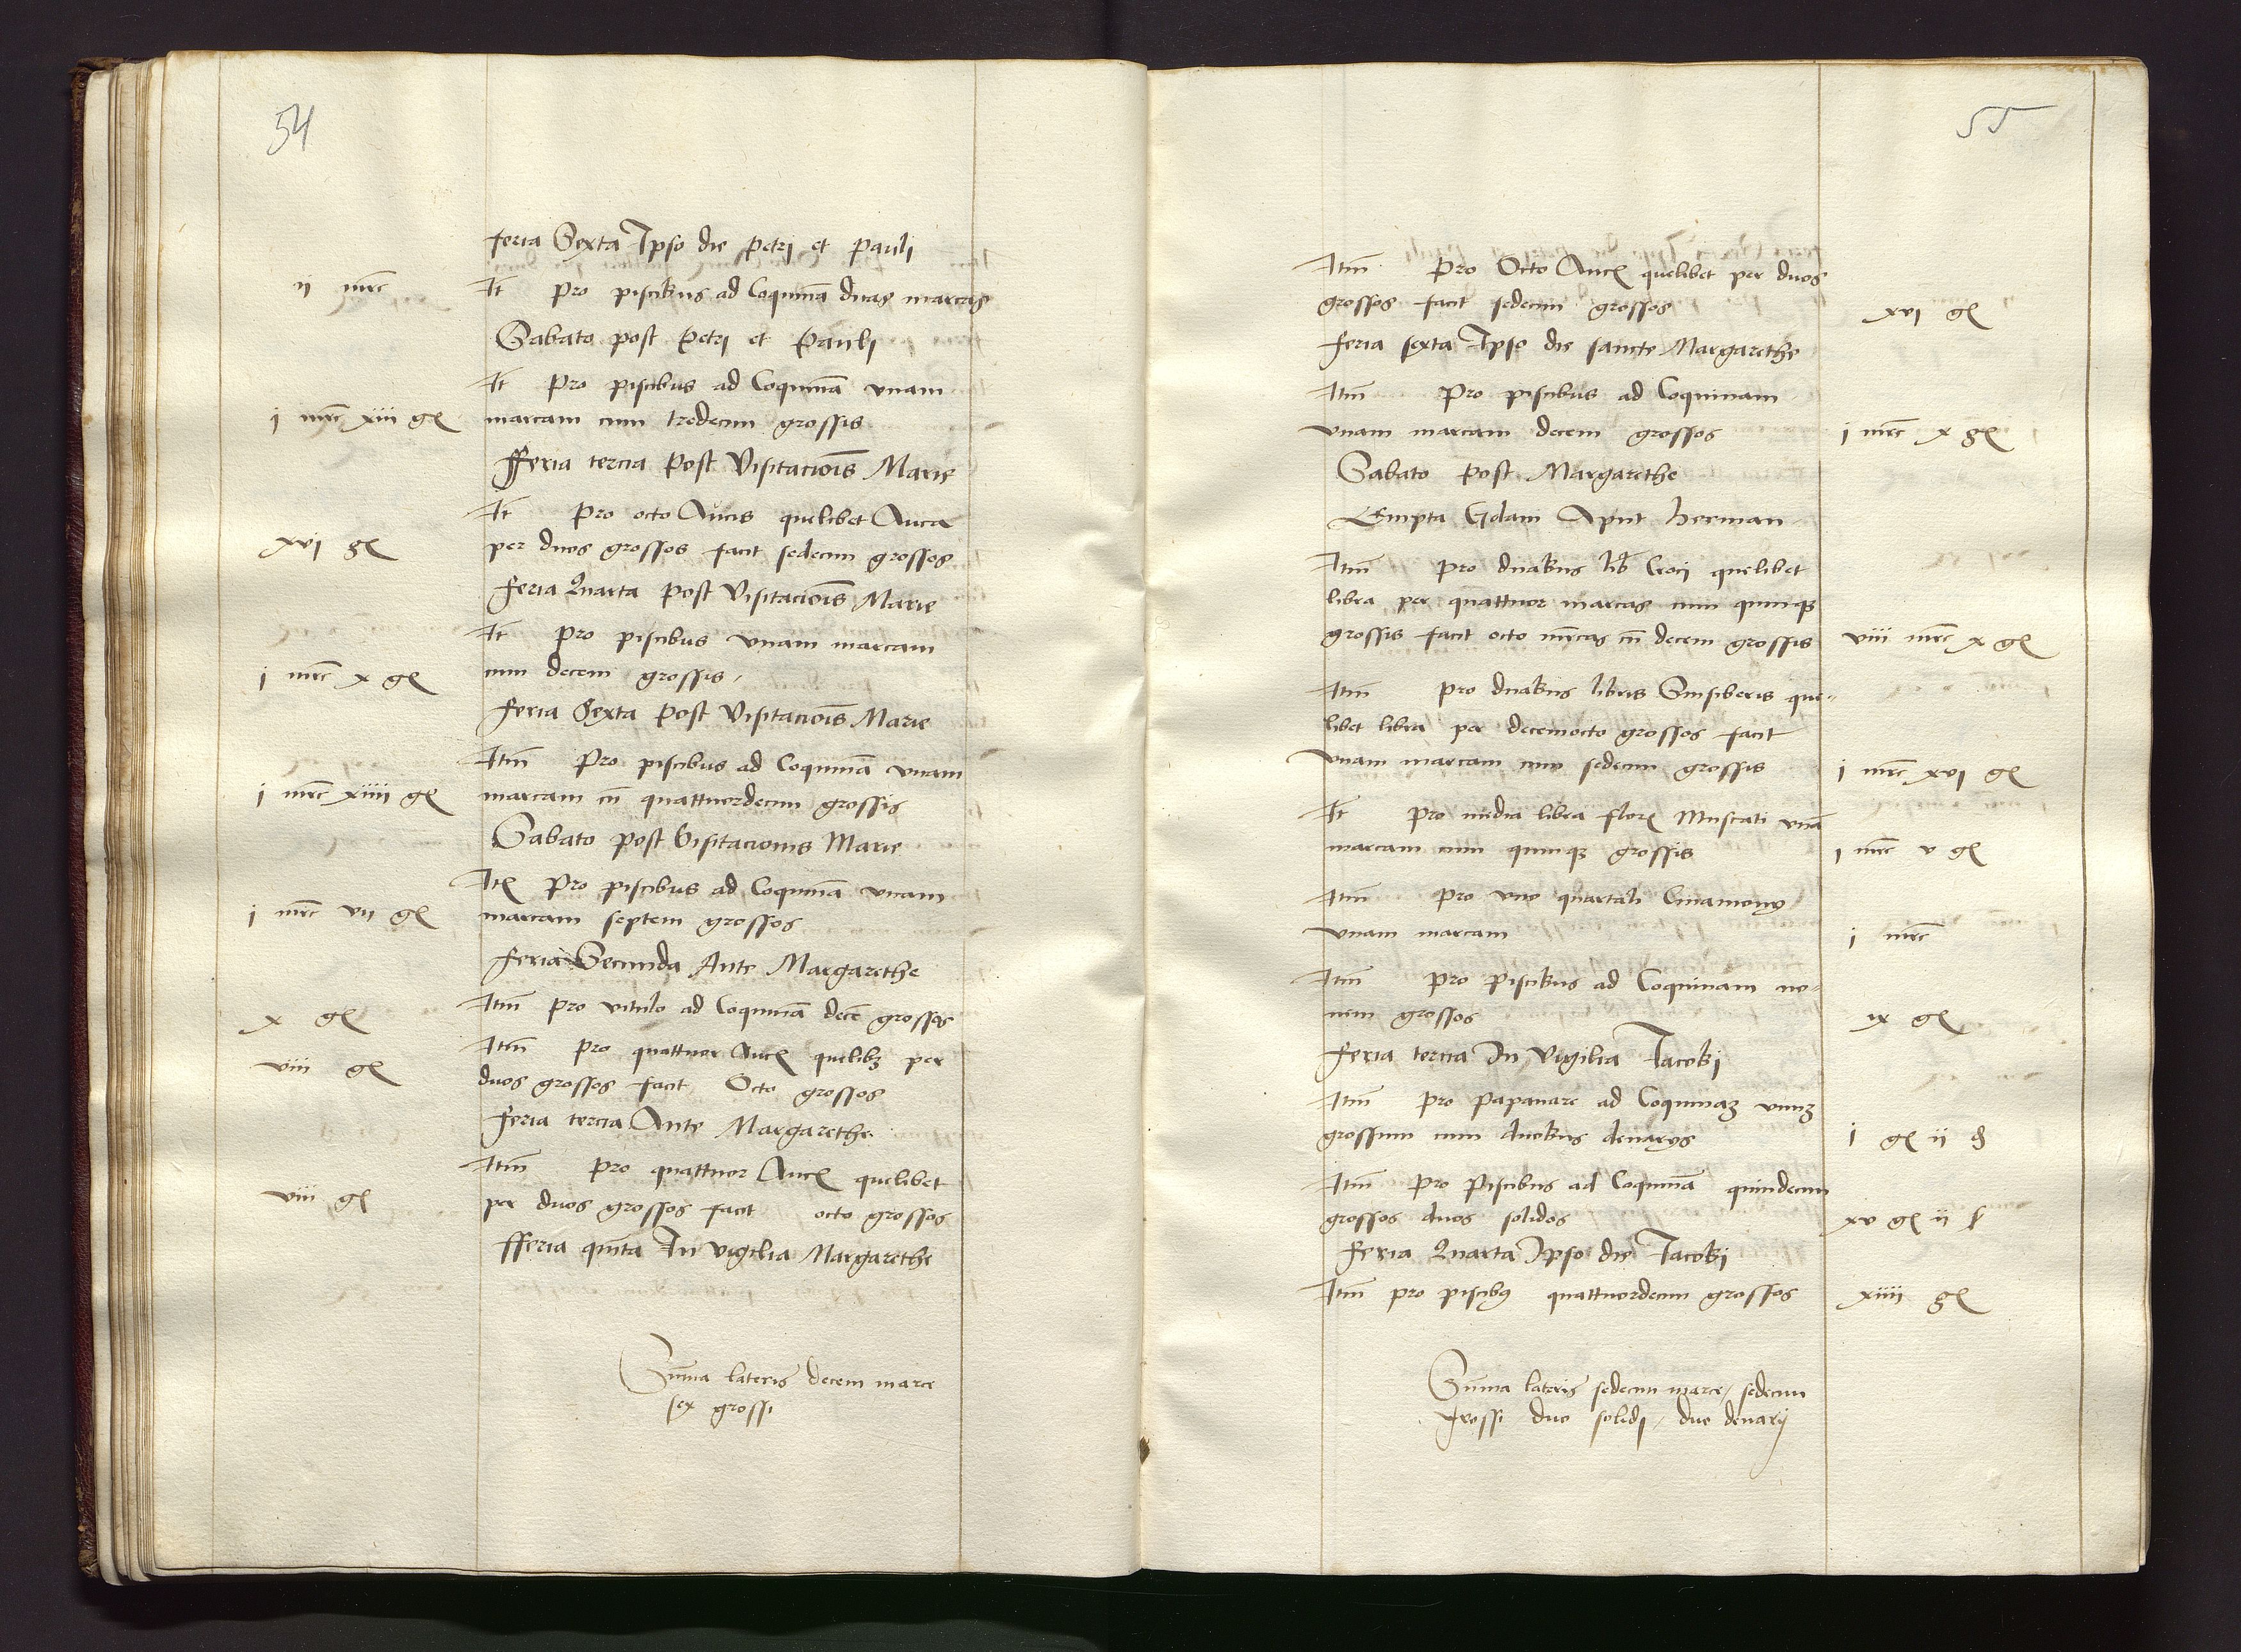 54
feria Sexta Ipso die Petri et Pauli
ij mrc It Pro piscibus ad Coquinā duas marcas
Sabato post Petri et Pauli
It Pro piscibus ad Coquinā vnam
j mrc xiii gͬ marcam cum tredecim grossis
Fferia tercia Post Visitacōis Marie
It Pro octo Aucis quelibet Auca
xvj gͬ per duos grossos facit sedecim grossos
feria Quarta Post Visitacōis Marie
It pro piscibus vnam marcam
j mrc x gͬ cum decem grossis
feria Sexta Post Visitacōis Marie
Itm Pro piscibus ad Coquinā vnam
j mrc xiiii gͬ marcam cū quattuordecim grossis
Sabato post Visitacionis Marie
Itͬ Pro piscibus ad Coquinā vnam
j mrc vij gͬ marcam septem grossos
feria Secunda Ante Margarethe
x gͬ Itm pro vitulo ad Coquinā decē grossos
Itm Pro quattuor Aucͬ quelibꝫ per
viii gͬ duos grossos facit Octo grossos
feria tercia Ante Margarethe
Itm Pro quattuor Aucͬ quelibet
viii gͬ per duos grossos facit octo grossos
fferia quīta In vigilia Margarethe
Sūma lateris decem marce
sex grossi
55
Itm Pro Octo Aucͬ quelibet per duos
grossos facit sedecim grossos xvj gͬ
feria sexta Ipso die sancte Margarethe
Itm Pro piscibus ad Coquinam
vnam marcam decem grossos j mrc x gͬ
Sabato Post Margarethe
Empta Gdani Aput herman
Itm Pro duabus lib Croci quelibet
libra per quattuor marcas cum quinqꝫ
grossis facit octo mrcas cū decem grossis viii mrc x gͬ
Itm pro duabus libris Sinsiberis que-
libet libra per decemocto grossos facit
vnam marcam cum sedecim grossis j mrc xvj gͬ
It Pro media libra florͬ Muscati vnā
marcam cum quinqꝫ grossis j mrc v gͬ
Itm pro vno quartali Cinamony
vnam marcam j mrc
Itm pro Piscibus ad Coquinam no-
uem grossos ix gͬ
feria tercia In Vigilia Jacobi
Itm pro papauare ad Coquinaꝫ vnuꝫ
grossum cum duobus denarys j gͬ ij ₰
Itm pro Piscibus ad Coquinā quindecim
grossos duos solidos xv gͬ ij ſ
feria Quarta Ipso die Jacobi
Itm pro piscibꝯ quattuordecim grossos xiiii gͬ
Sūma lateris sedecim marce / sedecim
grossi duo solidj / duo denarij